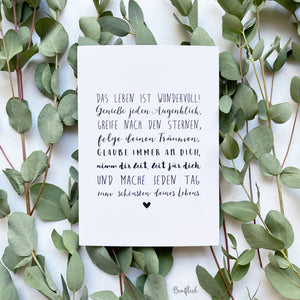 DAS LEBEN IST WUNDERVOLL!
Genieße jeden Augenblick,
GREIFE NACH DEN STERNEN,
folge deinen Träumen,
GLAUBE IMMER AN DICH,
nimm dir Zeit, Zeit für dich
UND MACHE JEDEN TAG
zum schönsten deines Lebens.